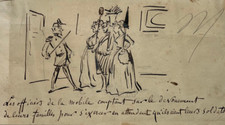 Les officiers de la mobile comptent sur le dévouement
de leurs familles pour s'exercer en attendant qu'ils aient leurs soldats